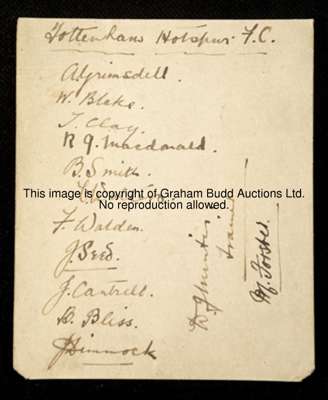 Tottenham Hotspur F.C.
A Grimsdell.
W. Blake.
T. Clay.
R G. Macdonald.
B. Smith.
This image is copyright of Graham Budd Auctions Ltd.
No reproduction allowed.
F. Walden.
J. Seed.
J. Cantrell.
B. Bliss.
J Dimmock
trainer
M. Forster.